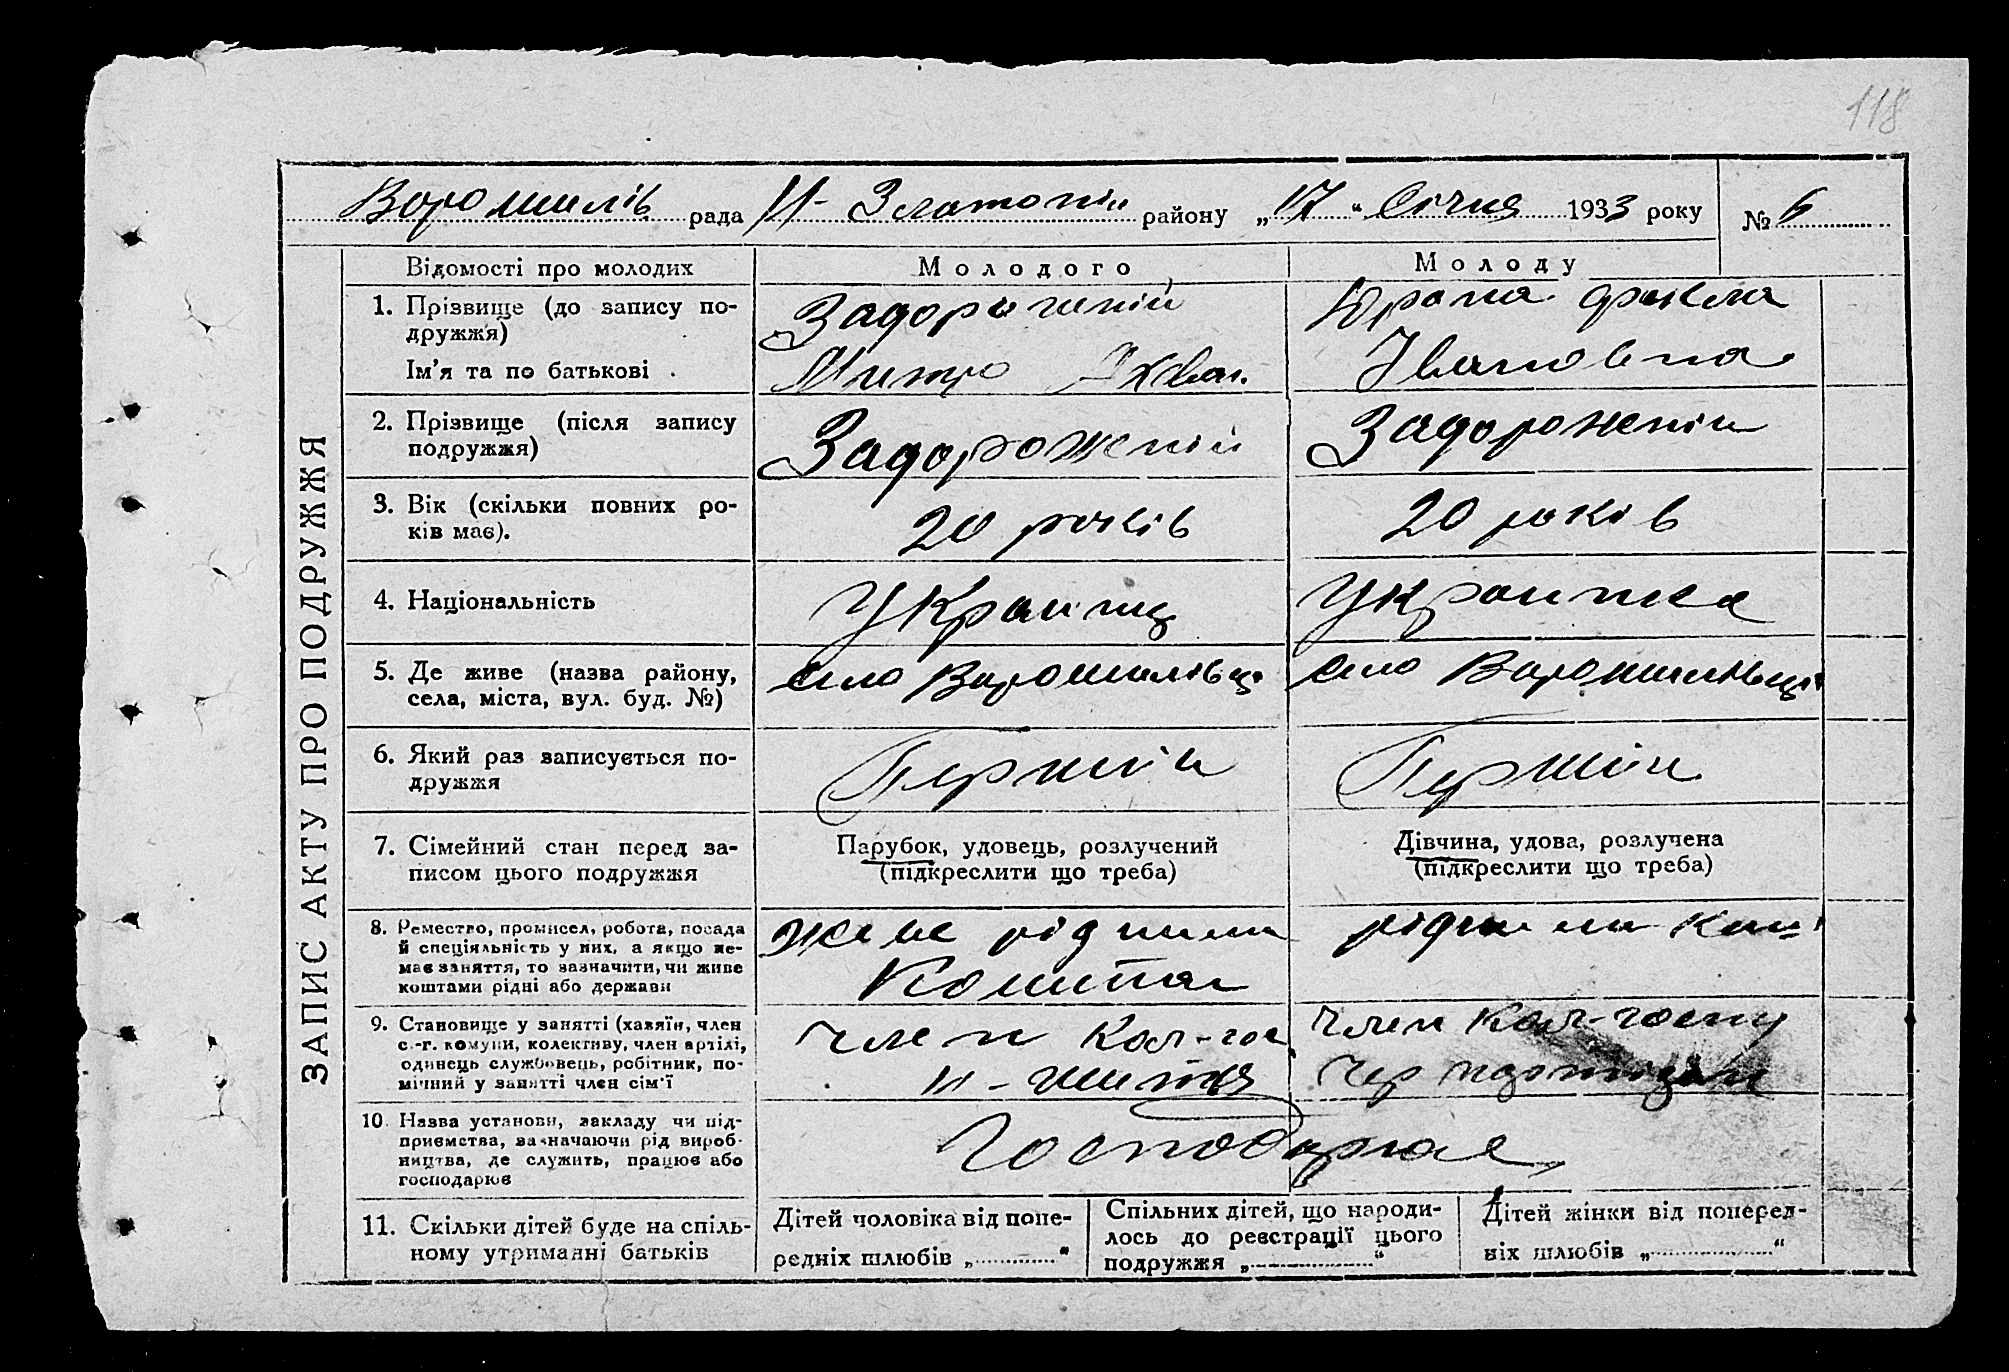 118
Ворошилів рада Н-Златопіл району „17“ Січня 1933 року № 6
ЗАПИС АКТУ ПРО ПОДРУЖЖЯ
Відомості про молодих
Молодого
Молоду
1. Прізвище (до запису по-
дружжя)
Ім’я та по батькові .
Задорожній
Митро
Юрота Фекла
Івановна
2. Прізвище (після запису
подружжя)
Задорожній
Задорожній
3. Вік (скільки повних ро-
ків має).
20 років
20 років
4. Національність
Українц
Українка
5. Де живе (назва району,
села, міста, вул. буд. №)
село Ворошилівці
село Ворошилівці
6. Який раз записується по-
дружжя
Перший
Перший
7. Сімейний стан перед за-
писом цього подружжя
Парубок, удовець, розлучений
(підкреслити що треба)
Дівчина, удова, розлучена
(підкреслити що треба)
8. Ремество, промисел, робота, посада
й спеціяльність у них, а якщо не-
має заняття, то зазначити, чи живе
коштами рідні або держави
живе рідними
Коштам
рідними
9. Становище у занятті (хазяїн, член
с.-г. комуни, колективу, член артілі,
одинець службовець, робітник, по-
мічний у занятті член сім’ї
член Кол-гос
н-життя
Член Кол-госпу
Чер партизан
10. Назва установи, закладу чи під-
приємства, зазначаючи рід вироб-
ництва, де служить, працює або
господарює
Господарює
11. Скільки дітей буде на спіль-
ному утриманні батьків
Дітей чоловіка від попе-
редніх шлюбів „............“
Спільних дітей, що народи-
лось до реєстрації цього
подружжя „..................“
Дітей жінки від поперед-
ніх шлюбів „..................“